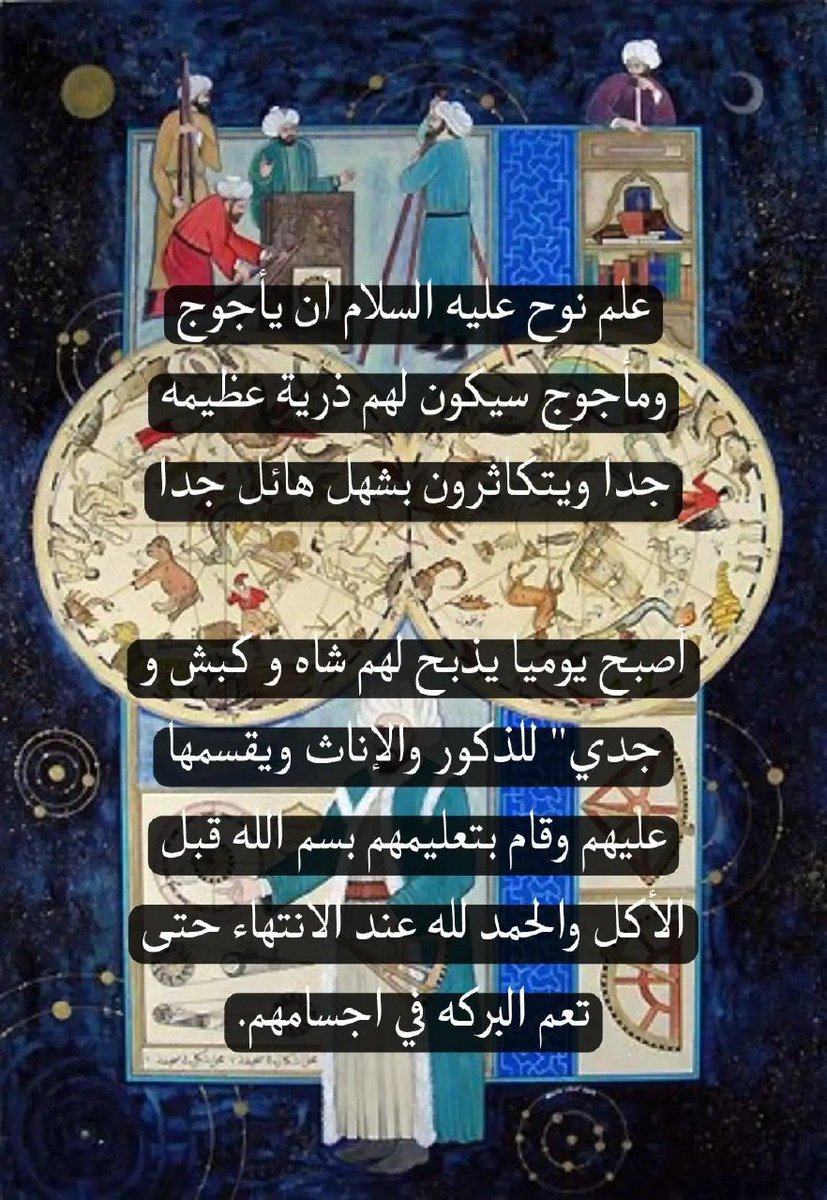 علم نوح عليه السلام أن يأجوج
ومأجوج سيكون لهم ذرية عظيمه
جدا ويتكاثرون بشهل هائل جدا
أصبح يوميا يذبح لهم شاه و كبش و
جدي" للذكور والإناث ويقسمها
عليهم وقام بتعليمهم بسم الله قبل
الأكل والحمد لله عند الانتهاء حتى
تعم البركه في اجسامهم.